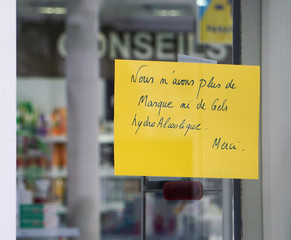 CONSEILS
Nous n'avons plus de
Masque ni de Gels
hydroAlcoolique.
Merci.